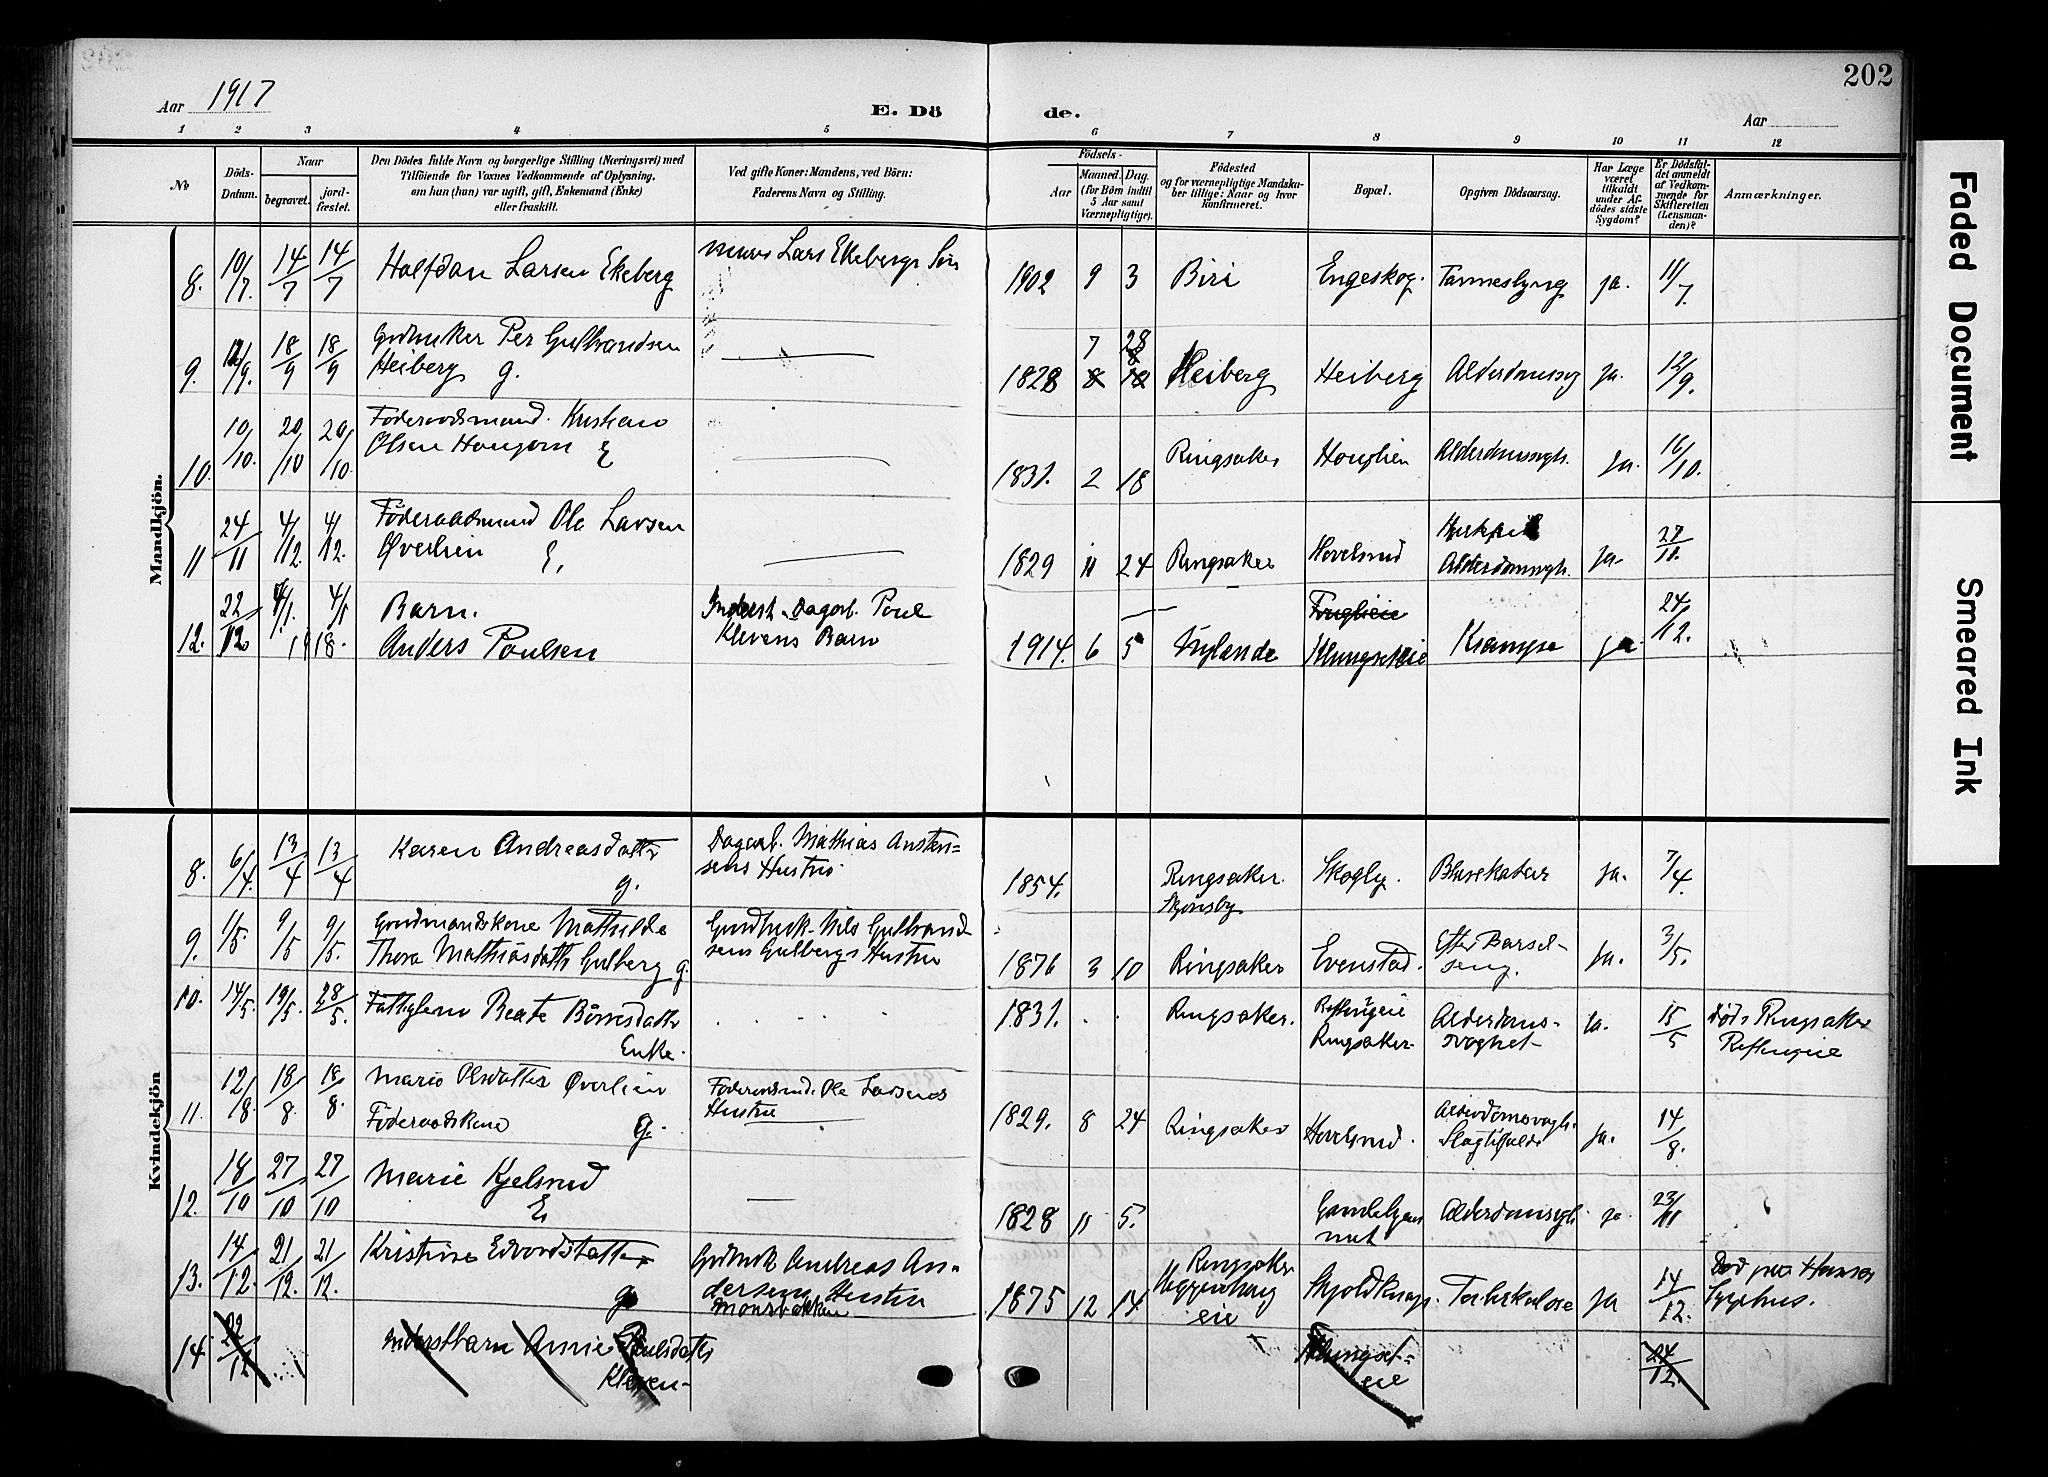 Aar 1917
E. Dö de.
Aar
202
1 2 3 4 5 6 7 8 9 10 11 12
No
Döds-Datum.
Naar
begravet.
jord-fæstet.
Den Dödes fulde Navn og borgerlige Stilling (Næringsvei) med
Tilföiende for Voxnes Vedkommende af Oplysning,
om hun (han) var ugift, gift, Enkemand (Enke)
eller fraskilt.
Ved gifte Koner: Mandens, ved Börn:
Faderens Navn og Stilling.
Födsels-
Aar
Maaned. Dag.
(for Börn indtil
5 Aar samt
Værnepligtige).
Födested
og for værnepligtige Mandska-
ber tillige: Naar og hvor
konfirmeret.
Bopæl.
Opgiven Dödsaarsag.
Har Læge
været
tilkaldt
under Af-
dödes sidste
Sygdom?
Er Dödsfal-
det anmeldt
af Vedkom-
mende for
Skifteretten
(Lensman-
den)?
Anmærkninger.
Mandkjön.
8. 10/7. 14/7 14/7 Halfdan Larsen Ekeberg
Murer Lars Ekebergs Søn
1902 9 3 Biri Engeskog. ja. 11/7.
9. 18/9 18/9 Per Gulbrandsen
Heiberg g.
7 28
1828 Heiberg Heiberg ja. 12/9.
10. 10/10. 20/10 20/10. Føderaadsmand Kristian
Olsen E
1831. 2 18 Ringsaker Alderdomssvgh. ja. 16/10.
11 24/11 4/12. 4/12. Føderaadsmand Ole Larsen
Øverlien E,
1829 11 24 Ringsaker Hovelsrud
Alderdomssvgh. ja. 27/11.
12. 22/12 4/1. 4/1 1918. Barn.
Anders Poulsen
Inderst Dagarb. Poul
Klevens Barn
1914. 6 5 Klungseteie Krampe ja 24/12.
Kvindekjön
8. 6/4. 13/4 13/4 Karen Andreasdatter
g.
Dagarb. Mathias Austen-
sens Hustru
1854. Ringsaker. Skogly. Blærekatar ja. 7/4
9. 1/5. 9/5 9/5. Gaardmandskone Mathilde
Thora Mathiasdatter Gulberg g.
Gaardbruk. Nils Gulbrand-
sens Gulbergs Hustru
1876 3 10 Ringsaker Evenstad. Efter Barsel-
seng. ja. 3/5.
10. 14/5. 19/5. 28/5. Fattiglem Beate Børresdatter
Enke.
1831. Ringsaker.
Ringsaker. Alderdoms-
svaghet ja. 15/5 Død i Ringsaker
11. 12/8. 18/8. 18/8. Marie Olsdatter Øverlien
Føderaadskone g.
Føderaadsmd. Ole Larsens
Hustru
1829. 8 24 Ringsaker Hovelsrud. Alderdomssvagh.
Slagtilfælde ja. 14/8.
12. 18/10 27/10 27/10 Marie Kjelsrud
E.
1828 11 5. Alderdomssvgh ja. 23/11
13. 14/12. 21/12. 21/12. Kristine Edvardsdatter
g.
Gaardbruk Andreas An-
dersens Hustru
Monsbakken
1875 12 14 Ringsaker
eie Tuberkulose ja 14/12. Død paa Hamar
Sygehus.
14. 22/12 Inderstbarn Annie Paulsdatter
Kleven-
Klungset-
eie 24/12.
Faded Document
Smeared Ink